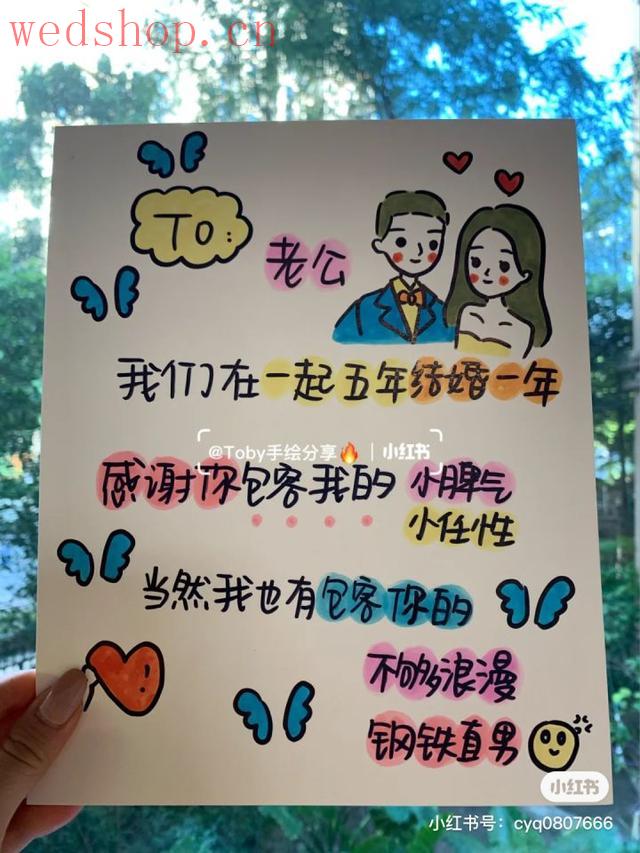 wedshop.cn
TO:
老公
我们在一起五年结婚一年
@Toby手绘分享🔥 | 小红书
感谢你包容我的 小脾气
小任性
当然我也有包容你的
不够浪漫
钢铁直男
小红书
小红书号：cyq0807666